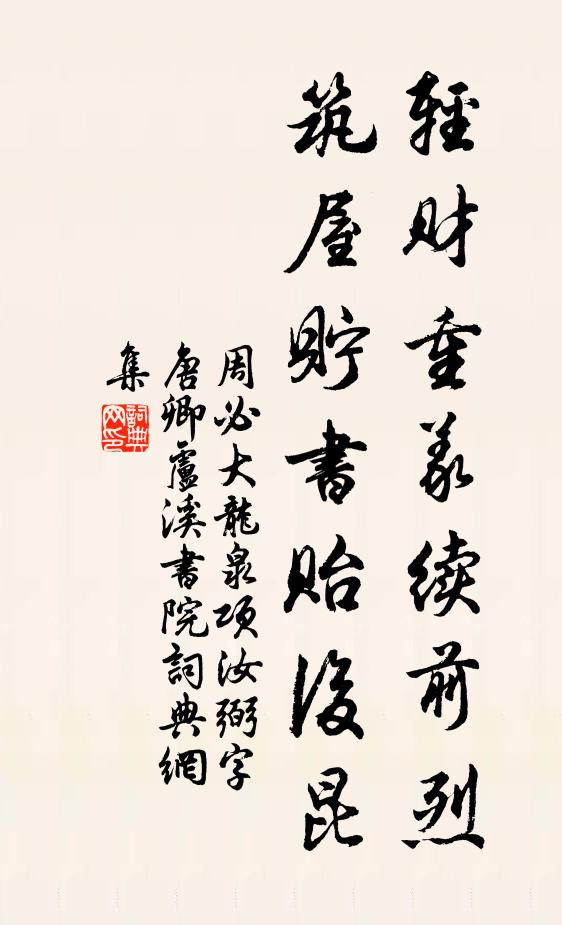 輕財重義续前烈
筑屋貯書貽後昆
周必大龍泉項汝弼字
唐卿盧溪書院詞典網
集
詞典网印